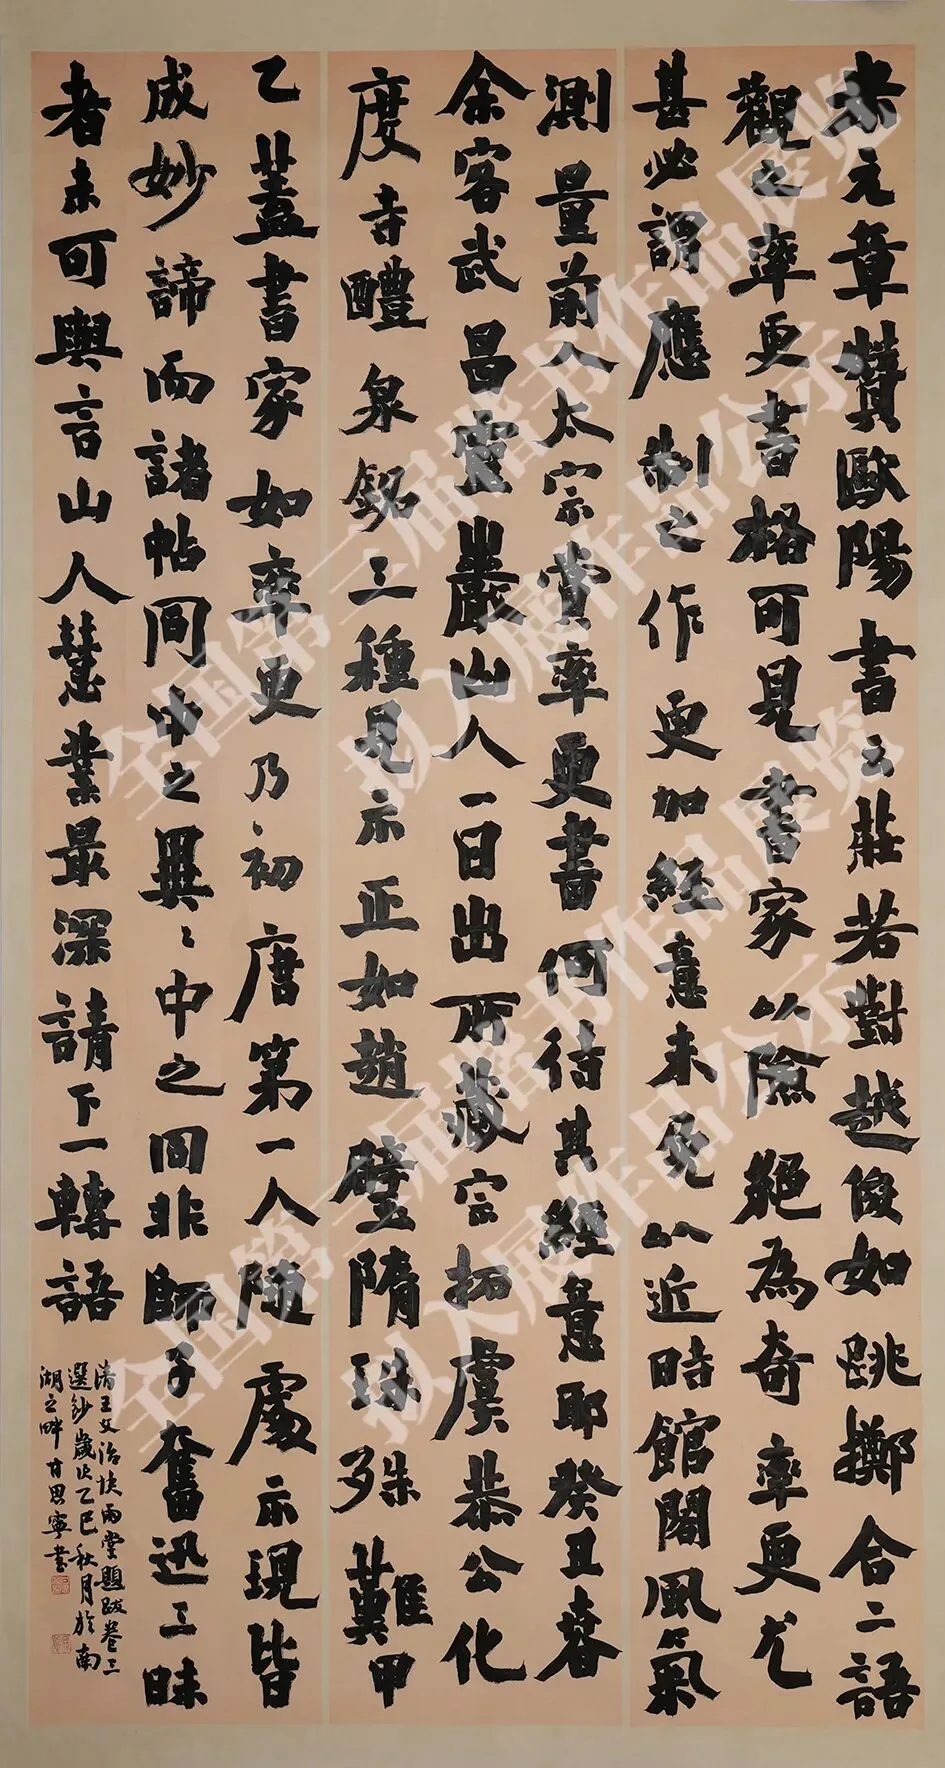 米元章贊歐陽書云莊若對越俊如跳擲合二語
觀之率更書格可見書家以險絕為奇率更尤
甚必謂應制之作更加經意未免以近時館閣風氣
測量前人太宗賞率更書何待其經意耶癸丑春
余客武昌靈巖山人一日出所藏宗拓虞恭公化
度寺醴泉銘三種見示正如趙璧隋珠殊難甲
乙蓋書家如率更乃初唐第一人隨處示現皆
成妙諦而諸帖同中之異異中之同非師子奮迅三昧
者未可與言山人慧業最深請下一轉語
清王文治快雨堂題跋卷三
選鈔歲次乙巳秋月於南
湖之畔甘思寧書
全国第三届楷书作品展览
拟入展作品公示
全国第三届楷书作品展览
拟入展作品公示